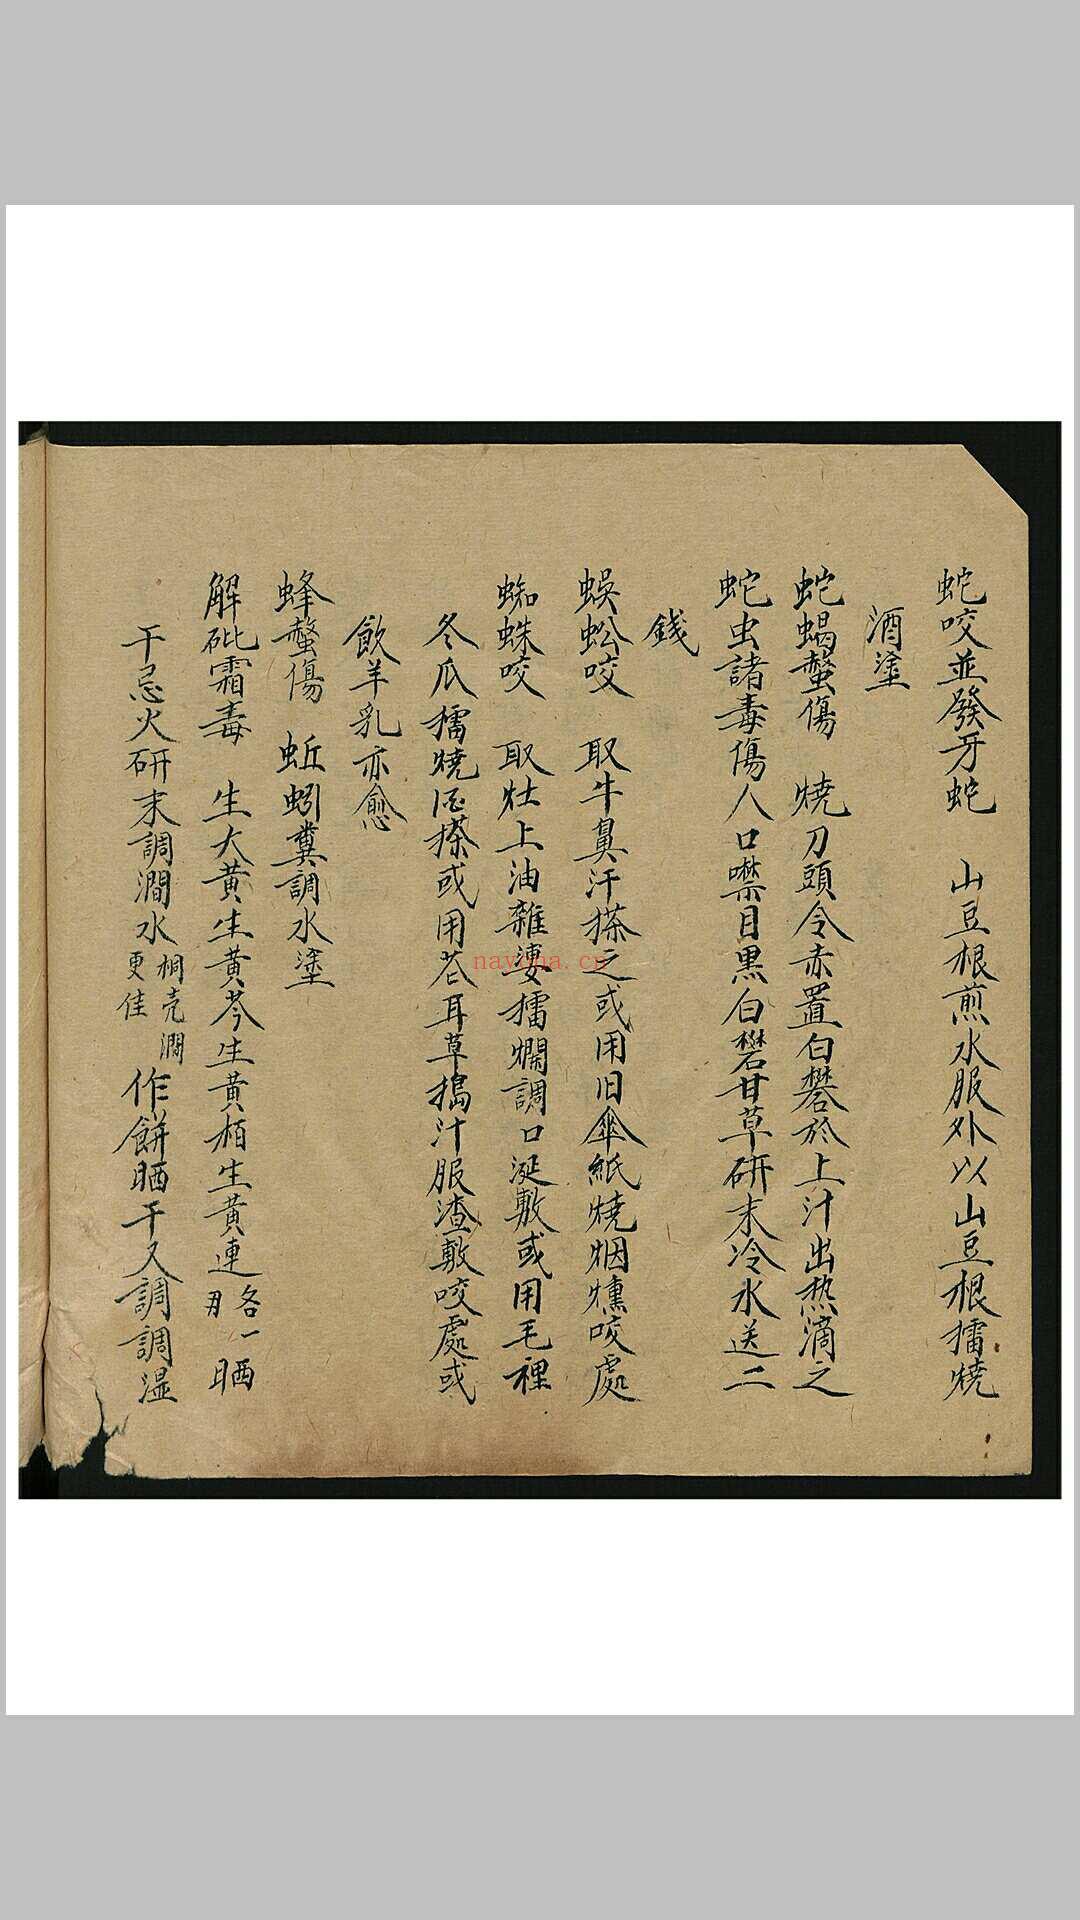 蛇咬並發牙蛇　山豆根煎水服外以山豆根擂燒
酒塗
蛇蝎螫傷　燒刀頭令赤置白礬於上汁出热滴之
蛇虫諸毒傷人口噤目黒白礬甘草研末冷水送二
錢
蜈蚣咬　取牛鼻汗搽之或用旧傘紙燒烟燻咬處
蜘蛛咬　取灶上油雜擂爛調口涎敷或用毛裡
冬瓜擂燒酒搽或用苍耳草搗汁服渣敷咬處或
飲羊乳亦愈
蜂螫傷　蚯蚓糞調水塗
解砒霜毒　生大黄生黄芩生黄栢生黄連各一　晒
干忌火研末調澗水桐壳澗更佳作餅晒干又調調湿
nayona.cn